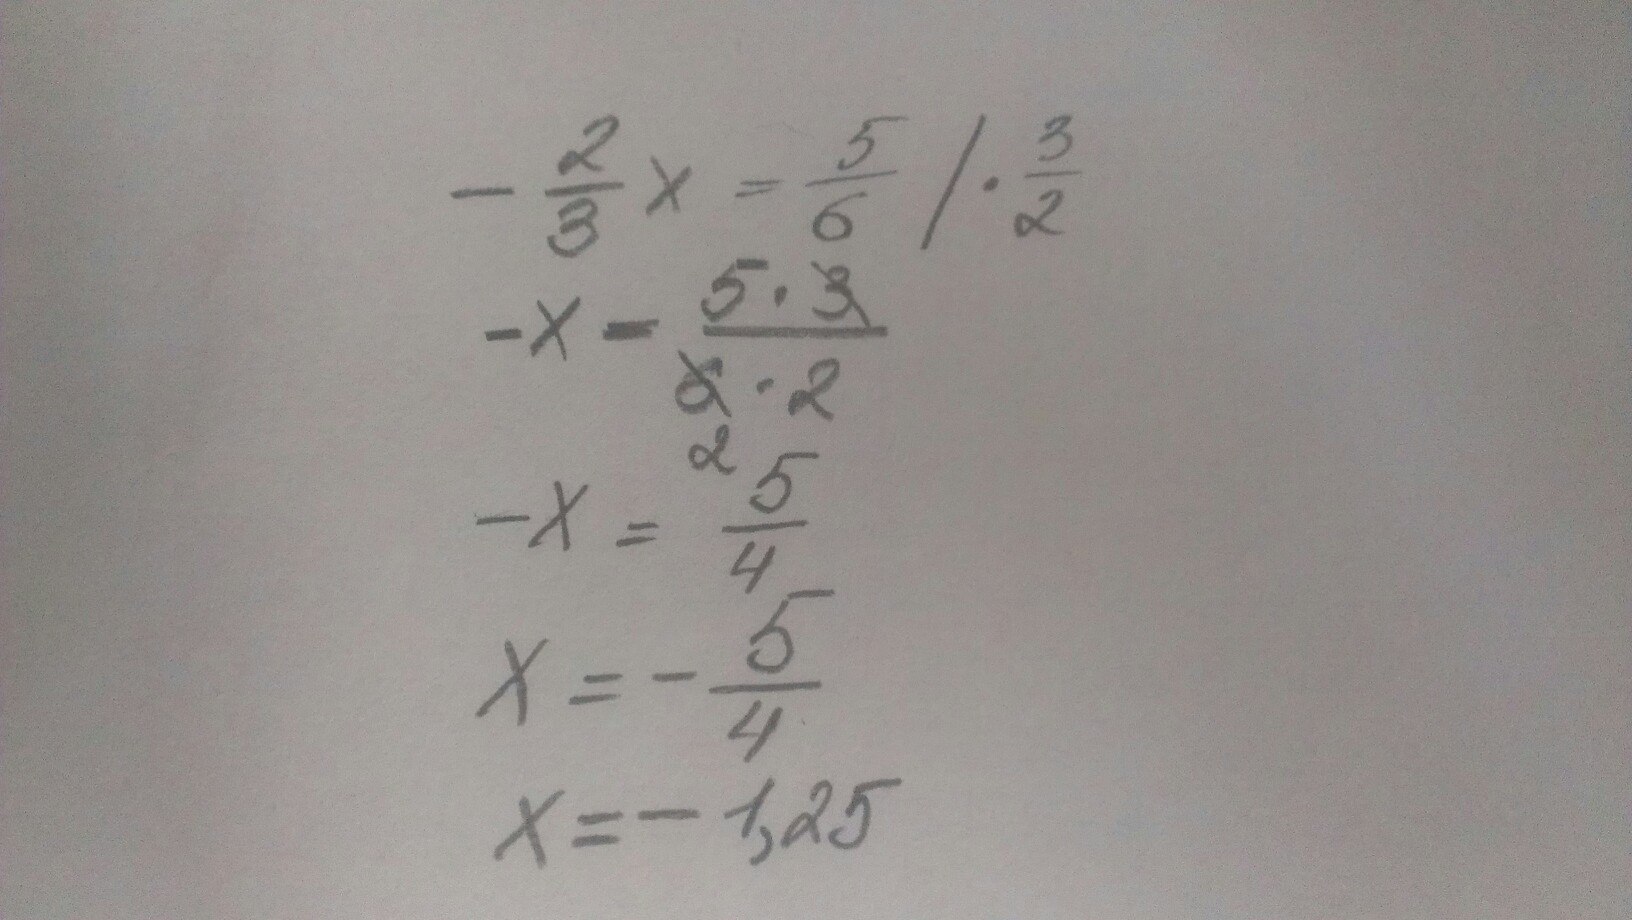 - 2/3 x = 5/6 / · 3/2
-x - 5·3/6·2 2
-x = 5/4
x = - 5/4
x = - 1,25